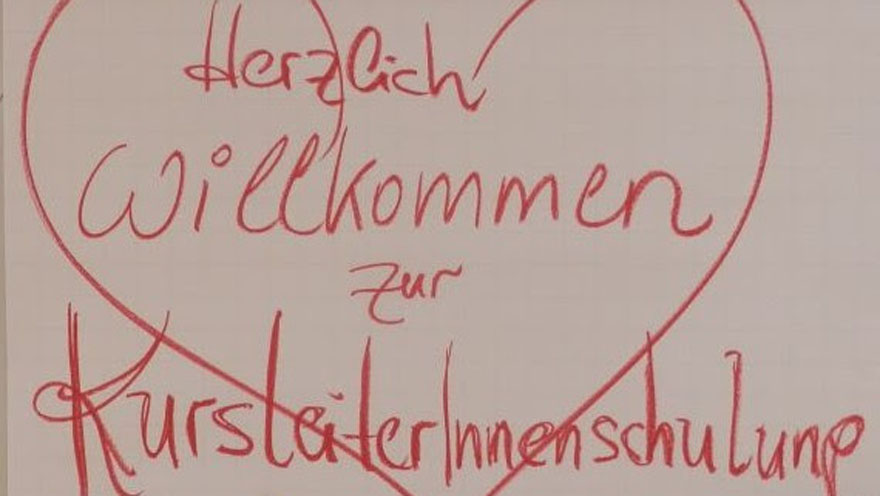 Herzlich
Willkommen
zur
KursleiterInnenschulung